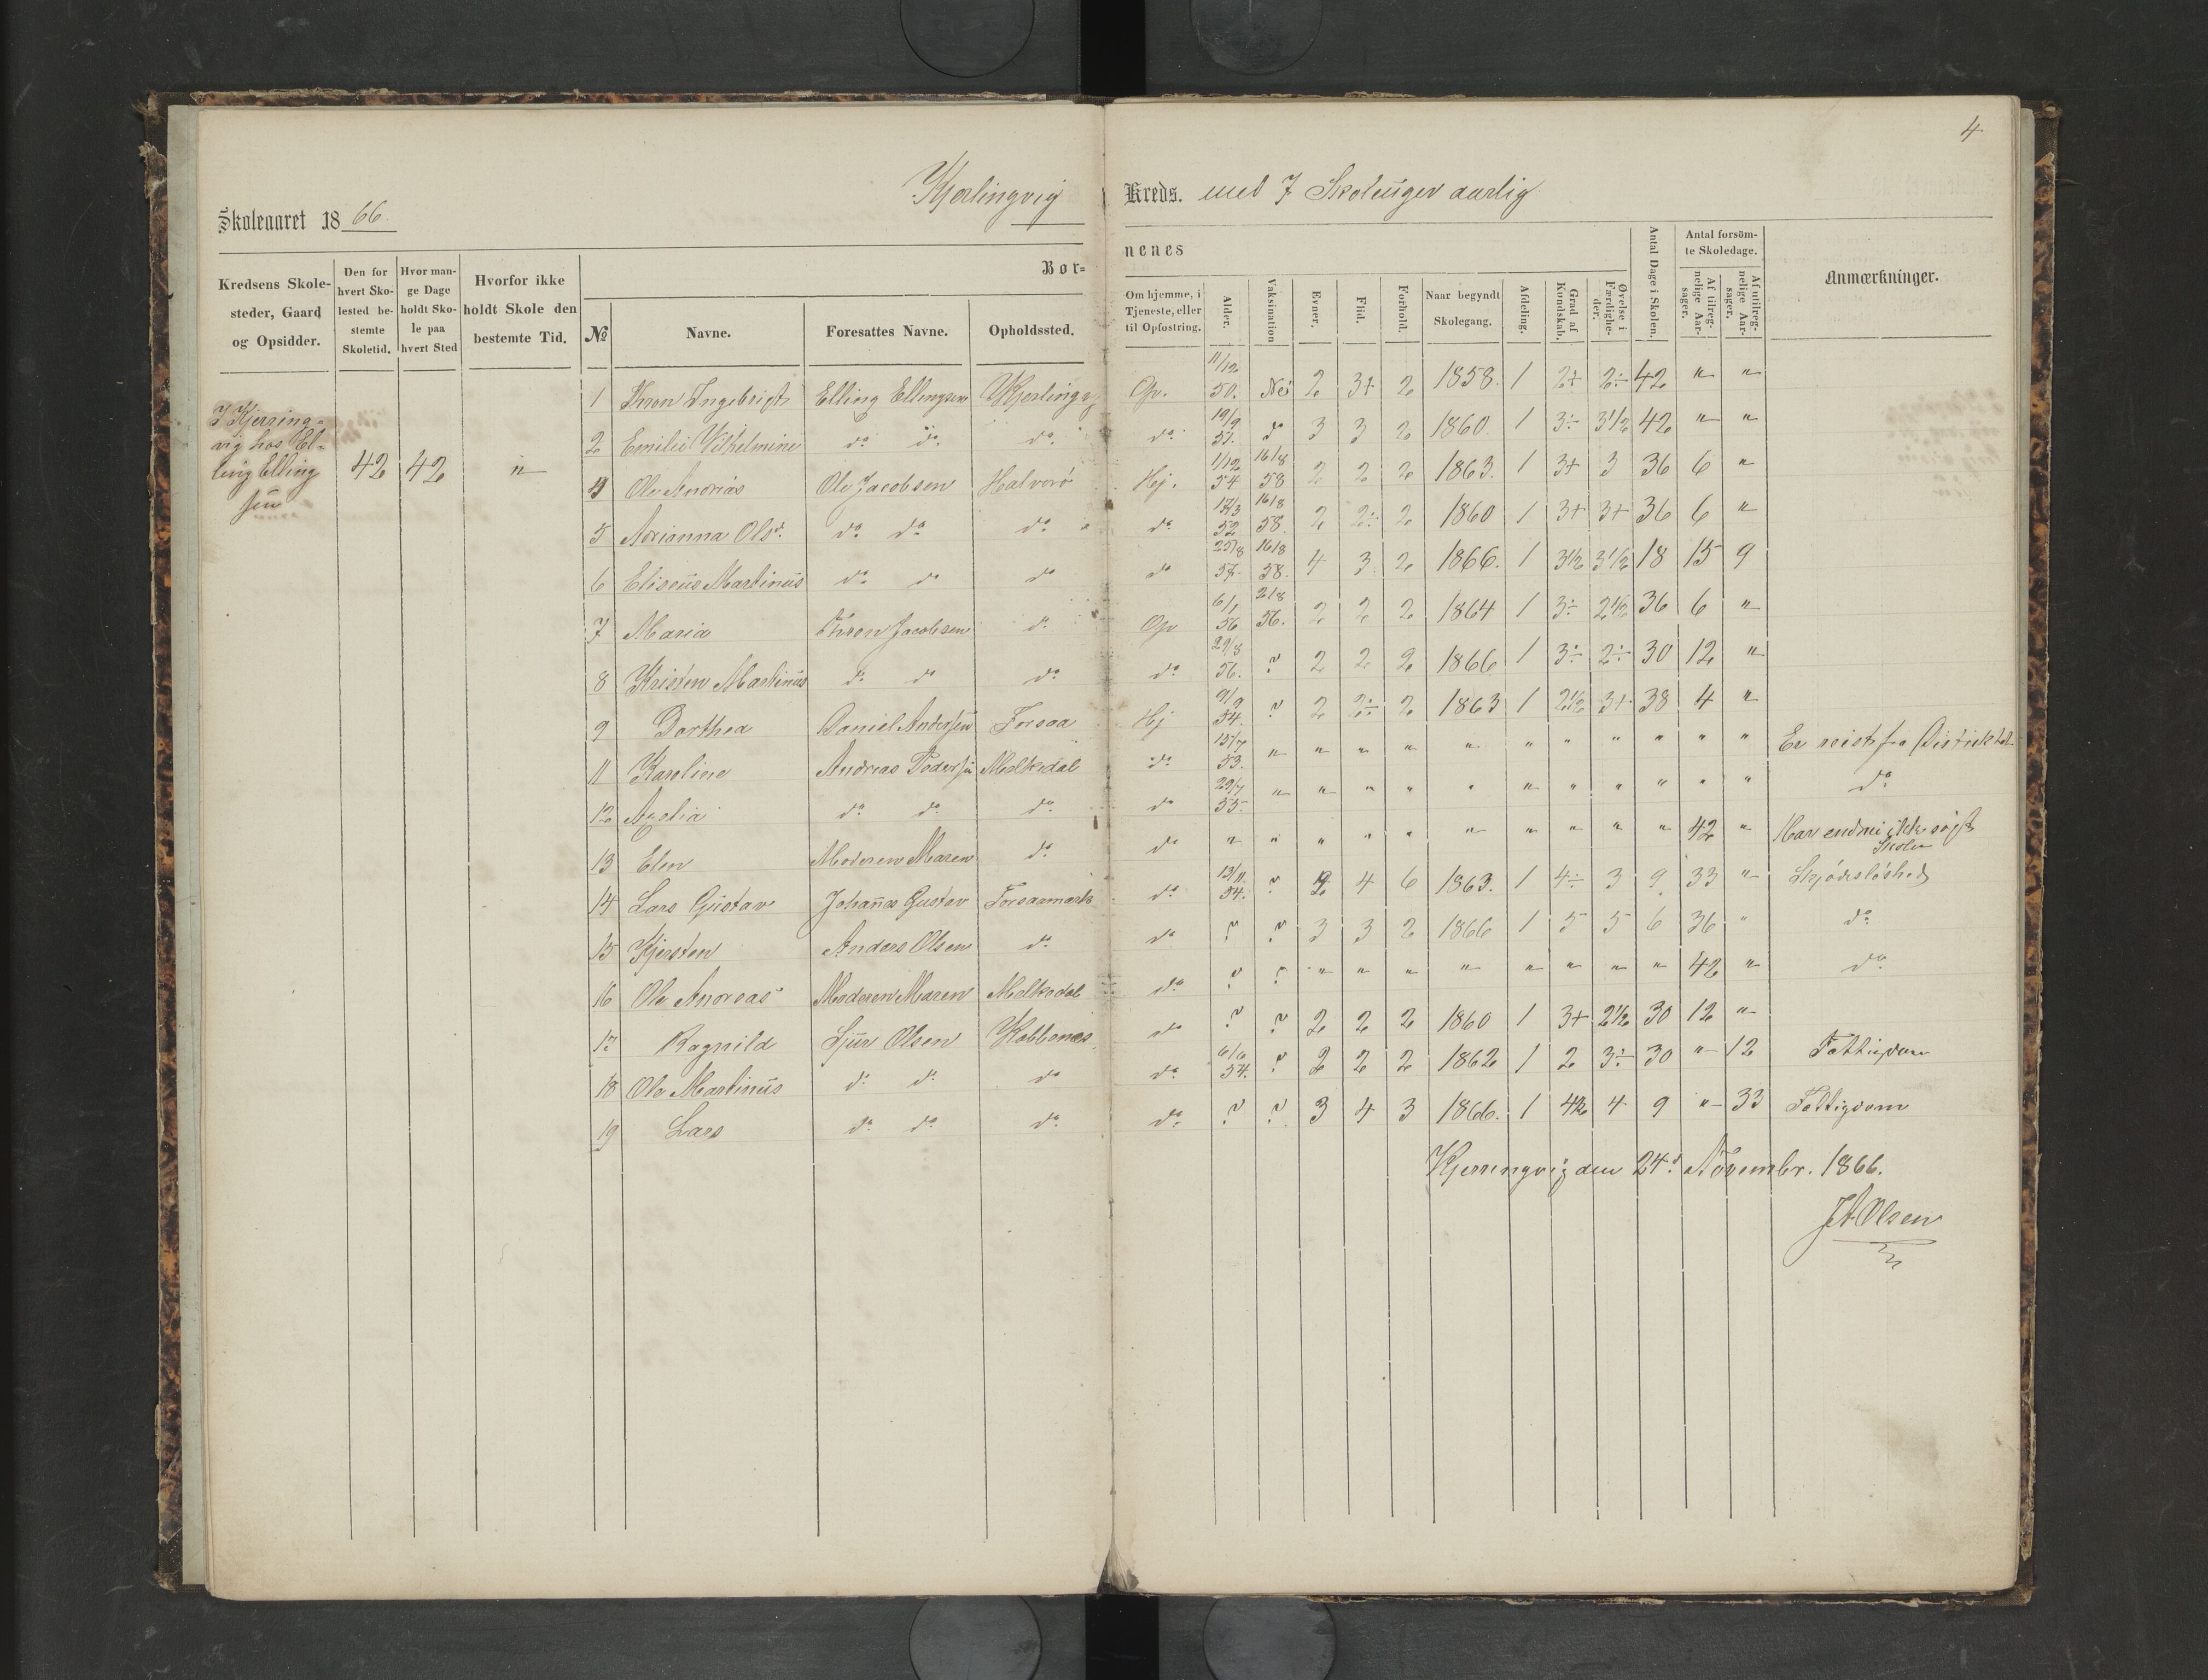 4
Skoleaaret 1866.
Kjerlingvig Kreds. med 7 Skoleuger aarlig
Kredsens Skolesteder, Gaard og Opsidder.
Den for hvert Skolested bestemte Skoletid.
Hvor mange Dage holdt Skole paa hvert Sted
Hvorfor ikke holdt Skole den bestemte Tid.
Bör=
nenes
№
Navne.
Foresattes Navne.
Opholdssted.
Om hjemme, i Tjeneste, eller til Opfostring.
Alder.
Vaksination
Evner.
Flid.
Forhold.
Naar begyndt Skolegang.
Afdeling.
Grad af Kundskab.
Øvelse i Færdigheder.
Antal Dage i Skolen.
Antal forsömte Skoledage.
Af tilregnelige Aarsager.
Af utilregnelige Aarsager.
Anmærkninger.
I Kjerring=
vig hos El=
ling Elling
sen
42 42 "
1 Thron Ingebrigt Elling Ellingsen Kjerlingv. Op. 11/12 50. Nei 2 3+ 2 1858. 1 2+ 2÷ 42 " "
2 Emilie Vilhelmine do do do do 19/9 51. do 3 3 2 1860. 1 3÷ 3 1/2 42 " "
4 Ole Andrias Ole Jacobsen Halvorö Hj. 1/12 54 16/8 58 2 2 2 1863. 1 3+ 3 36 6 "
5 Adrianna Olsd. do do do do 17/3 52 16/8 58. 2 2÷ 2 1860 1 3+ 3+ 36 6 "
6 Eliseus Martinus do do do do 25/8 57. 16/8 58. 4 3 2 1866. 1 3 1/2 3 1/2 18 15 9
7 Maria Thron Jacobsen do Op 6/1 56 2/8 56. 2 2 2 1864 1 3÷ 2 1/2 36 6 "
8 Kristen Martinus do do do do 29/8 56. ? 2 2 2 1866 1 3÷ 2÷ 30 12 "
9 Dorthea Daniel Andersen Forsaa Hj 9/9 54. ? 2 2÷ 2 1863 1 2 1/2 3+ 38 4 "
11 Karoline Andreas Pedersen Melkedal do 15/7 53. " " " " " " " " " " " Er reist fra Distriktet
12 do do do do 29/7 55. " " " " " " " " " " " do
13 Elen Moderen Maren do do " " " " " " " " " " 42 " Har endnu ikke søgt
Skolen
14 Lars Gustav Johannes Gustav Forsaamark do 13/11. 54. ? 2 4 6 1863. 1 4÷ 3 9 33 " Skjødesløshed
15 Kjersten Anders Olsen do do ? ? 3 3 2 1866 1 5 5 6 36 " do
16 Ole Andreas Moderen Maren Melkedal do ? ? " " " " " " " " 42 " do
17 Ragnild Sjur Olsen Kobbenes do ? ? 2 2 2 1860 1 3+ 2 1/2 30 12 "
18 Ole Martinus do do do do 6/6 54. ? 2 2 2 1862 1 2 3÷ 30 " 12 Fattigdom
19 Lars do do do do ? ? 3 4 3 1866. 1 4 1/2 4 9 " 33 Fattigdom
Kjerringvig den 24d Novembr. 1866.
JAOlsen